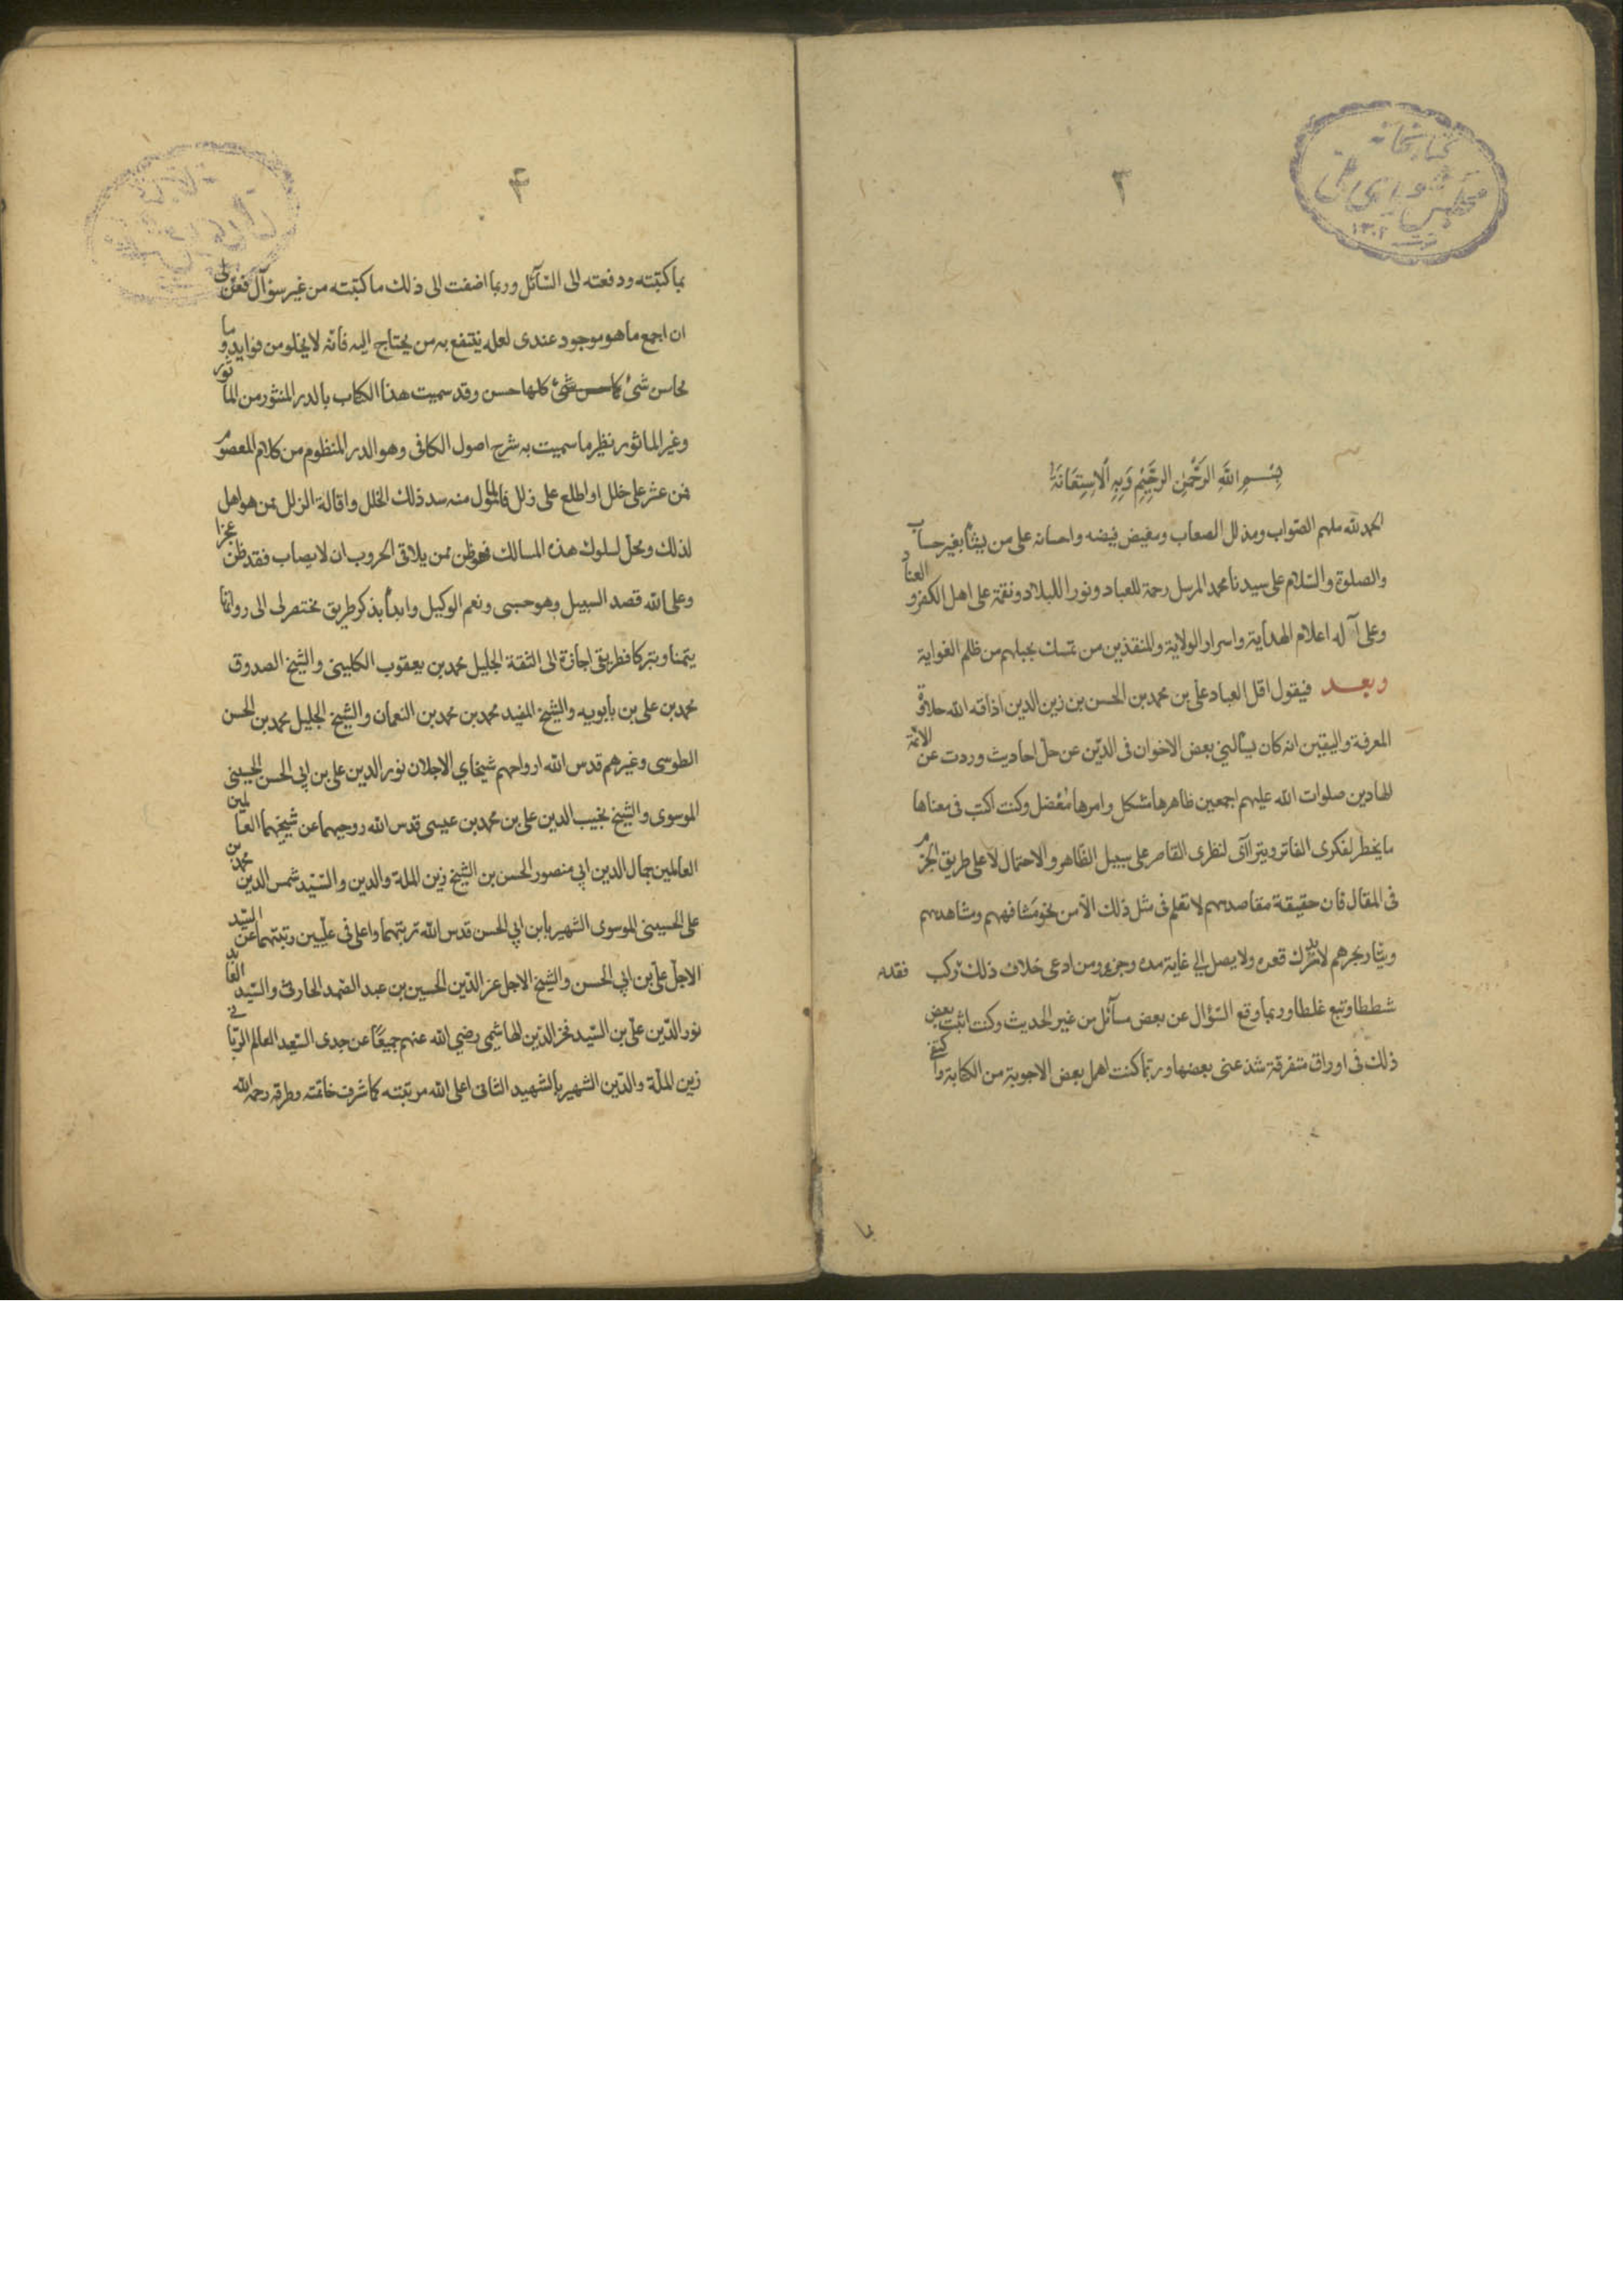 كتابخانه
مجلس شورای ملی
١٣٠٢
٣
بِسْمِ اللَّهِ الرَّحْمٰنِ الرَّحِيْمِ وَبِهِ الْاِسْتِعَانَة
الحمد لله ملهم الصواب ومذلل الصعاب ومفيض فيضه واحسانه على من يشأ بغير حساب
والصلوة والسّلام على سيدنا محمد المرسل رحمة للعباد ونورا للبلاد ونقمة على اهل الكفر والعناد
وعلى آله اعلام الهداية واسرار الولاية والمنقذين من تمسك بحبلهم من ظلم الغواية
وبعد فيقول اقل العباد علي بن محمد بن الحسن بن زين الدين اذاقه الله حلاوة
المعرفة واليقين انه كان يسألني بعض الاخوان فى الدّين عن حلّ احاديث وردت عن الائمة
الهادين صلوات الله عليهم اجمعين ظاهرها مشكل وامرها مُعْضل وكنت اكتب فى معناها
ما يخطر لفكرى الفاتر ويتراآى لنظرى القاصر على سبيل الظاهر والاحتمال لا على طريق الجزم
فى المقال فان حقيقة مقاصدهم لا تعلم فى مثل ذلك الّا من نحو مشافههم ومشاهدهم
وتيّار بحرهم لا يدرك قعره ولا يصل الى غاية مده وجزره ومن ادعى خلاف ذلك ركب فقد
شططا وتبع غلطا وربما وقع السّؤال عن بعض مسآئل من غير الحديث وكنت اثبت بعض
ذلك فى اوراق متفرقة شذ عنى بعضها وربّما كنت اهمل بعض الاجوبة من الكتابة واكتفى
۴
بما كتبته ودفعته الى السّآئل وربما اضفت الى ذلك ما كتبته من غير سؤآل فعنّ لى
ان اجمع ما هو موجود عندى لعله ينتفع به من يحتاج اليه فانّه لا يخلو من فوايد وما
محاسن شئ كلها حسن وقد سميت هذا الكتاب بالدر المنثور من المأثور
وغير الماثور نظير ما سميت به شرح اصول الكافى وهو الدر المنظوم من كلام المعصوم
فمن عثر على خلل او اطلع على زلل فالمسؤل منه سد ذلك الخلل واقالة الزلل ممن هو اهل
لذلك ومحلّ لسلوك هذه المسالك فمن يلاقى الحروب ان لا يصاب فقد ظن عجزا
وعلى الله قصد السبيل وهو حسبى ونعم الوكيل وابدأ بذكر طريق مختصر لى الى رواتنا
تيمّنا وتبركا فطريقى اجازة الى الثقة الجليل محمد بن يعقوب الكلينى والشيخ الصدوق
محمد بن على بن بابويه والشيخ المفيد محمد بن محمد بن النعمان والشيخ الجليل محمد بن الحسن
الطوسى وغيرهم قدس الله ارواحهم شيخاي الاجلان نور الدين على بن ابى الحسن الحسينى
الموسوى والشيخ نجيب الدين على بن محمد بن عيسى قدس الله روحيهما عن شيخيهما العالمين
العاملين جمال الدين ابى منصور الحسن بن الشيخ زين الملة والدين والسّيّد شمس الدين محمد بن
على الحسينى الموسوى الشهير بابن ابى الحسن قدس الله تربتهما واعلى فى عليّين رتبتهما عن السّيّد
الاجلّ علىّ بن ابى الحسن والشيخ الاجل عز الدّين الحسين بن عبد الصّمد الحارثى والسّيد العابد
نور الدّين علىّ بن السّيد فخر الدّين الهاشمى رضي الله عنهم جميعًا عن جدى السّعيد العالم الربّانى
زين الملّة والدّين الشهير بالشهيد الثانى اعلى الله مرتبته كما شرف خاتمته وطرقه رحمه الله